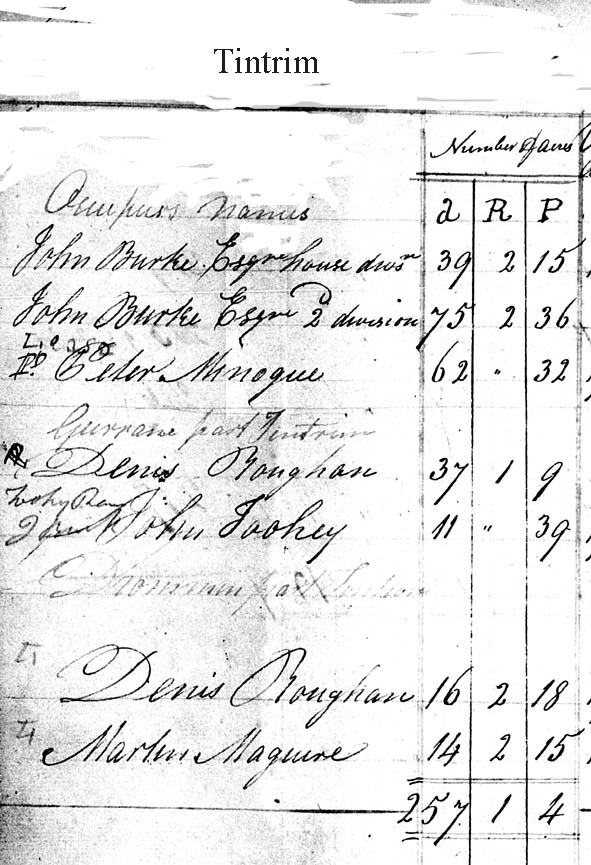 Tintrim
Number of acres
Occupiers names a R P
John Burke Esqre house divsn 39 2 15
John Burke Esqre 2d division 75 2 36
Peter Minogue 62 " 32
Gurrane part Tintrim
Denis Roughan 37 1 9
John Toohey 11 " 39
part
Denis Roughan 16 2 18
Martin Maguire 14 2 15
257 1 4